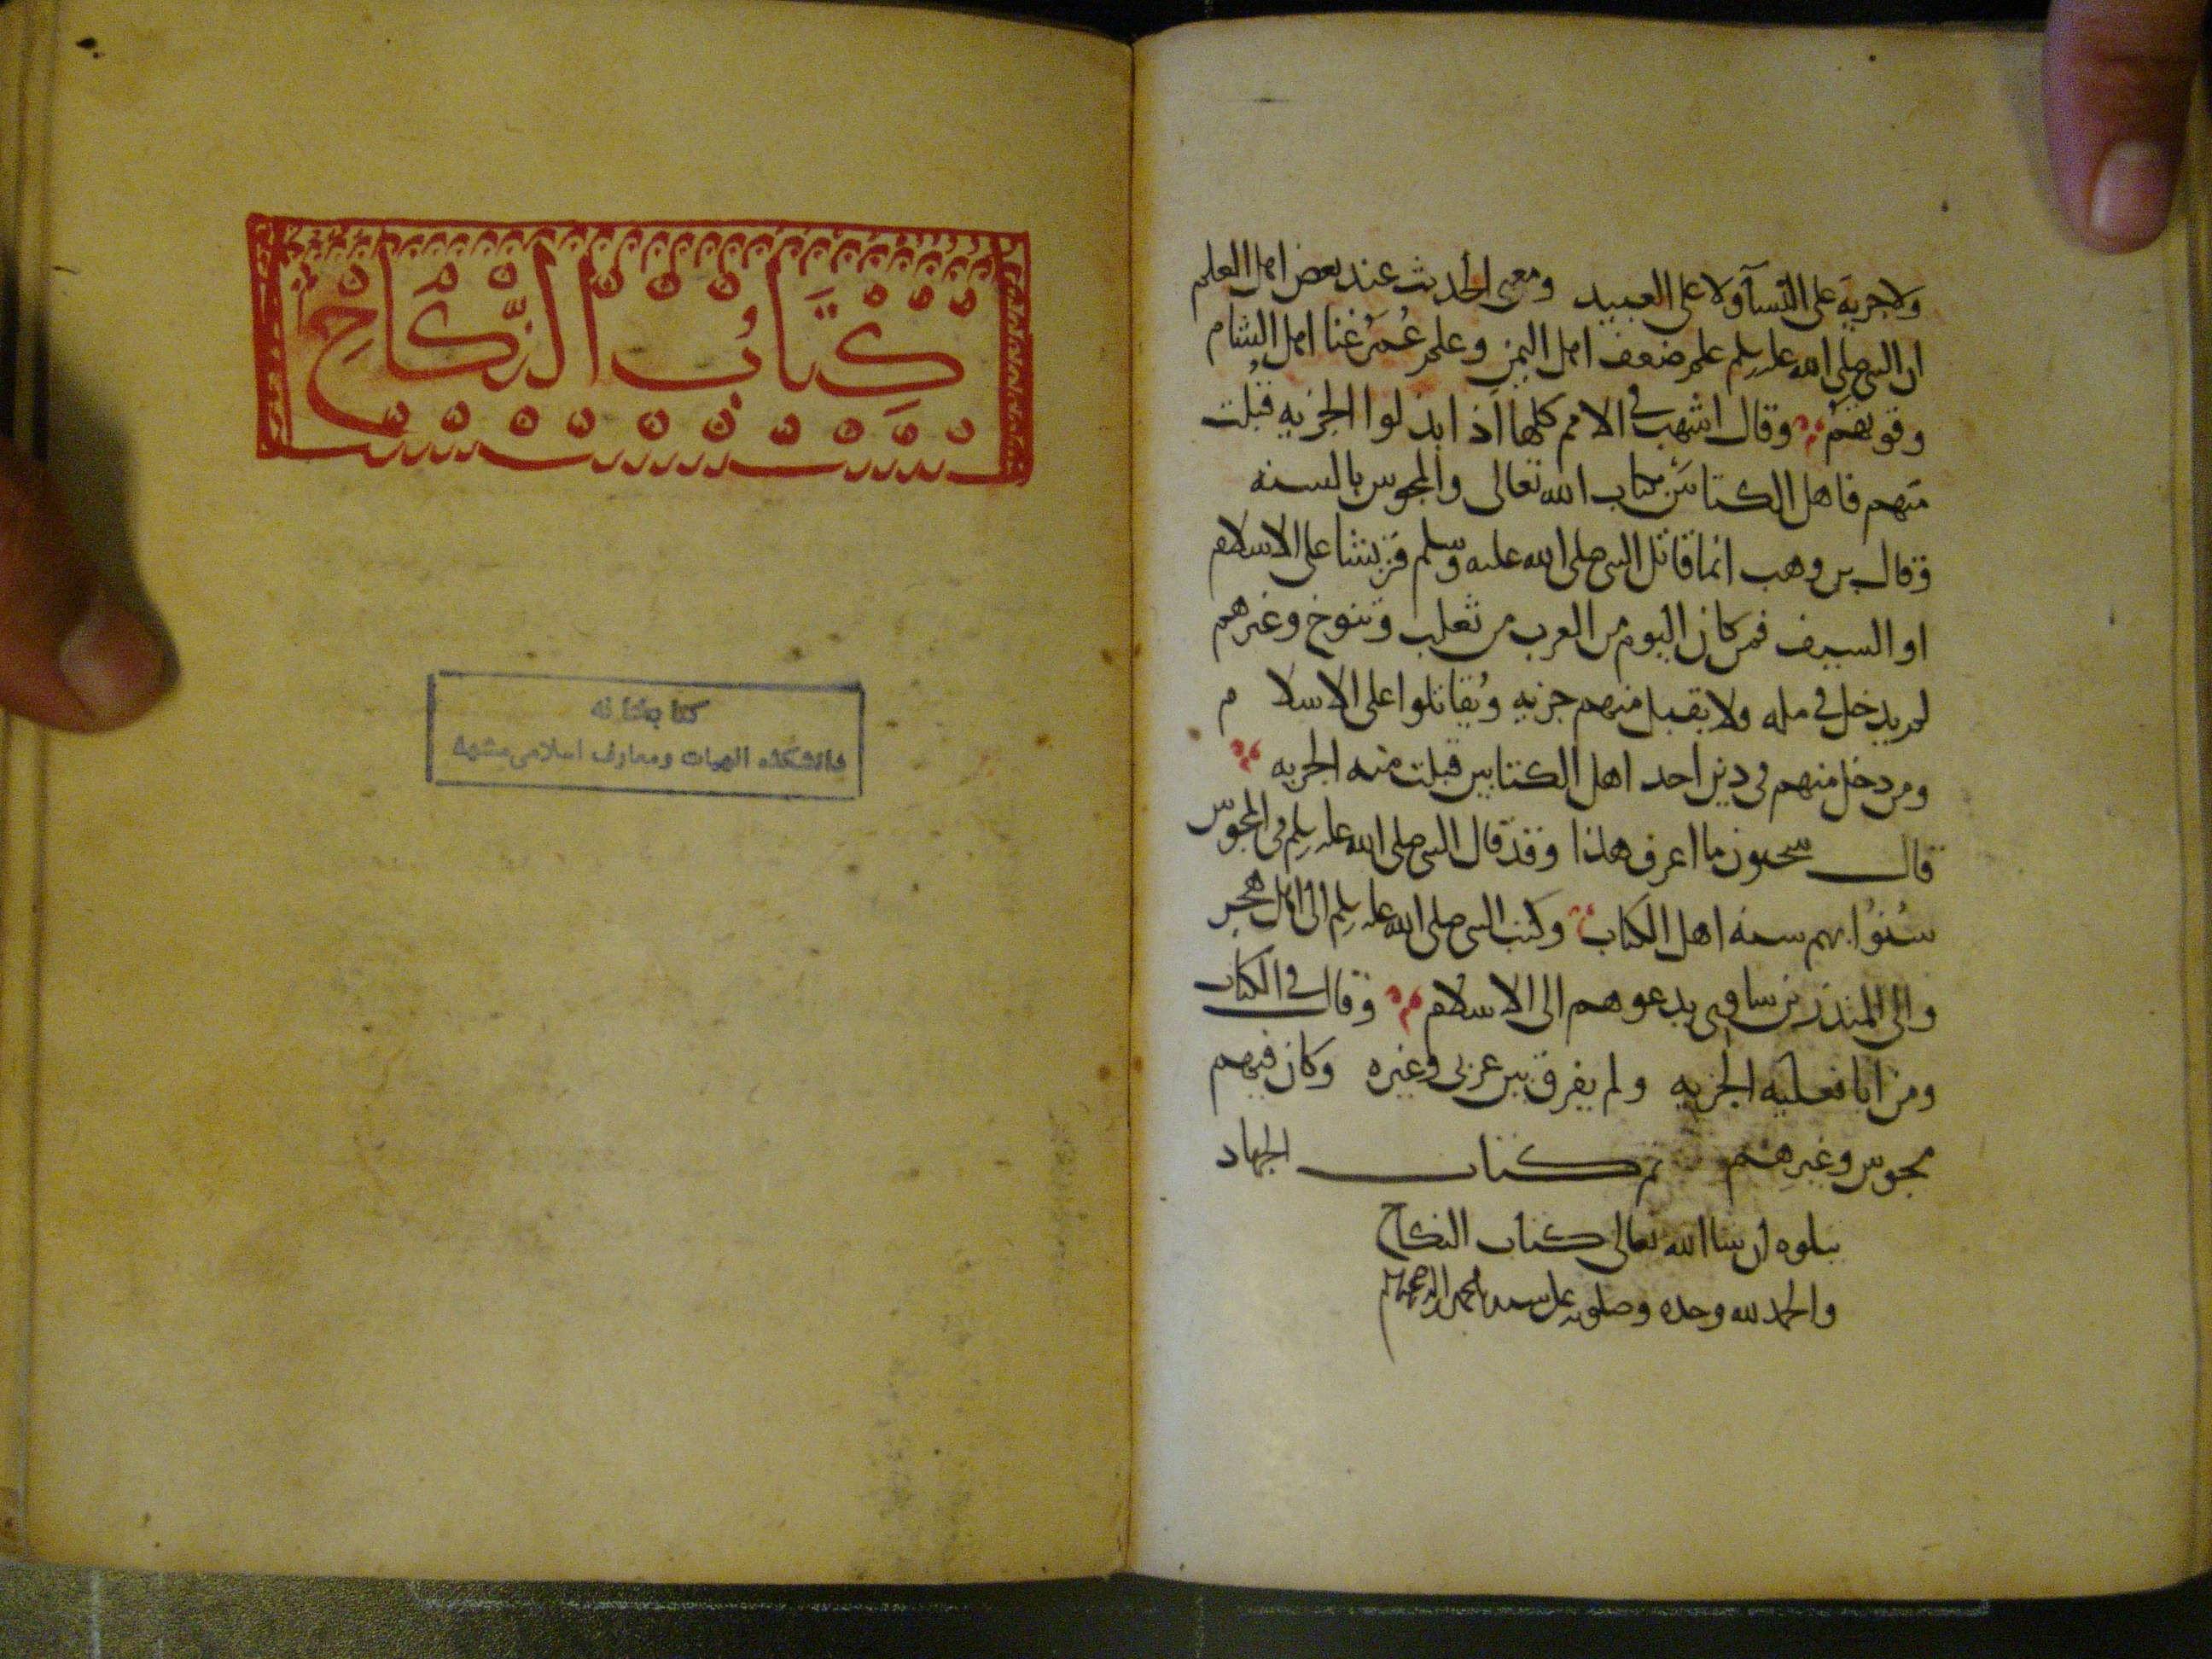 ولا جزية على النسآ ولا على العبيد ومعنى الحديث عند بعض اهل العلم
ان النبي صلى الله عليه وسلم علم ضعف اهل اليمن وعلم عُمَرُ غنا اهل الشام
وقوتهم وقال اشهب في الامم كلها اذا بذلوا الجزيه قُبلت
منهم فاهل الكتابين بكتاب الله تعالى والمجوس بالسنه
وقال بن وهب انما قاتل النبي صلى الله عليه وسلم قريشا على الاسلام
او السيف فمن كان اليوم من العرب من تغلب وتنوخ وغيرهم
لم يدخل في مله ولا يقبل منهم جزيه ويُقاتلوا على الاسلا م
ومن دخل منهم في دين احد اهل الكتابين قبلت منه الجزيه
قال سحنون ما اعرف هاذا وقد قال النبي صلى الله عليه وسلم في المجوس
سُنوُا بهم سنه اهل الكتاب وكتب النبي صلى الله عليه وسلم الى اهل هجر
والى المنذر بن ساوى يدعوهم الى الاسلام وقال في الكتاب
ومن ابا فعليه الجزيه ولم يفرق بين عربى وغيره وكان فيهم
مجوس وغيرهم تم كتاب الجهاد
يتلوه ان شا الله تعالى كتاب النكاح
والحمد لله وحده وصلوته على سيدنا محمد
كِتَابُ النِّكَاحِ
كتابخانه
دانشكده الهيات ومعارف اسلامى مشهد